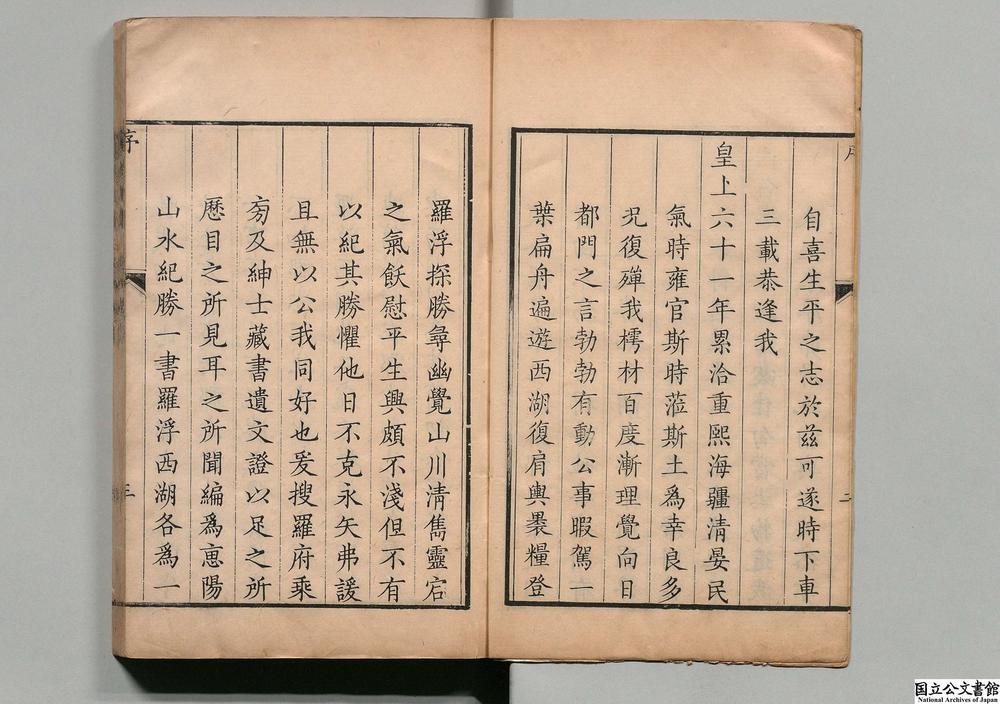 自喜生平之志於兹可遂時下車
三載恭逢我
皇上六十一年累洽重熙海疆清晏民
氣時雍官斯時蒞斯土為幸良多
況復殫我樗材百度漸理覺向日
都門之言勃勃有動公事暇駕一
葉扁舟遍遊西湖復肩輿褁糧登
二
羅浮探勝尋幽覺山川清雋靈宕
之氣飫慰平生興頗不淺但不有
以紀其勝懼他日不克永矢弗諼
且無以公我同好也爰搜羅府乘
旁及紳士藏書遺文證以足之所
歷目之所見耳之所聞編為惠陽
山水紀勝一書羅浮西湖各為一
序
三
国立公文書館
National Archives of Japan